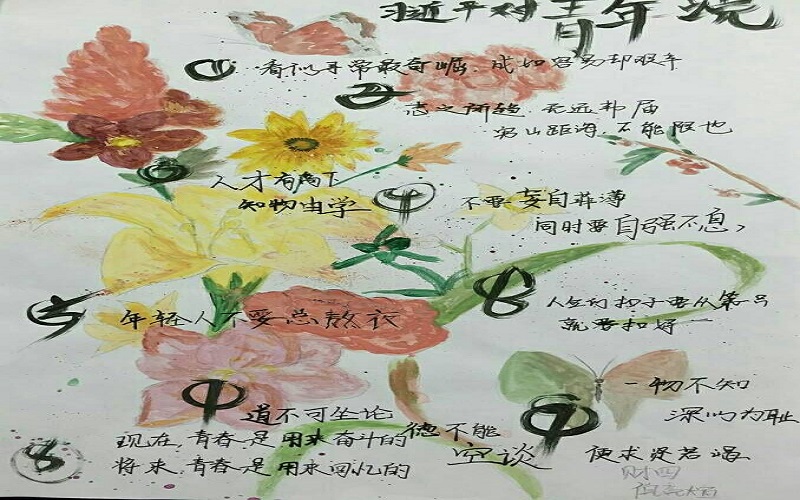 习近平对青年说
① 看似寻常最奇崛 成如容易却艰辛
② 志之所趋 无远弗届
穷山距海 不能限也
③ 人才有高下
知物由学
④ 不要妄自菲薄
同时要自强不息,
⑤ 年轻人不要总熬夜
⑥ 人生的扣子要从第
就要扣好一
① 道不可坐论
德不能
空谈
⑦ 一物不知
深以为耻
便求学若渴
⑧ 现在,青春是用来奋斗的
将来,青春是用来回忆的
财四